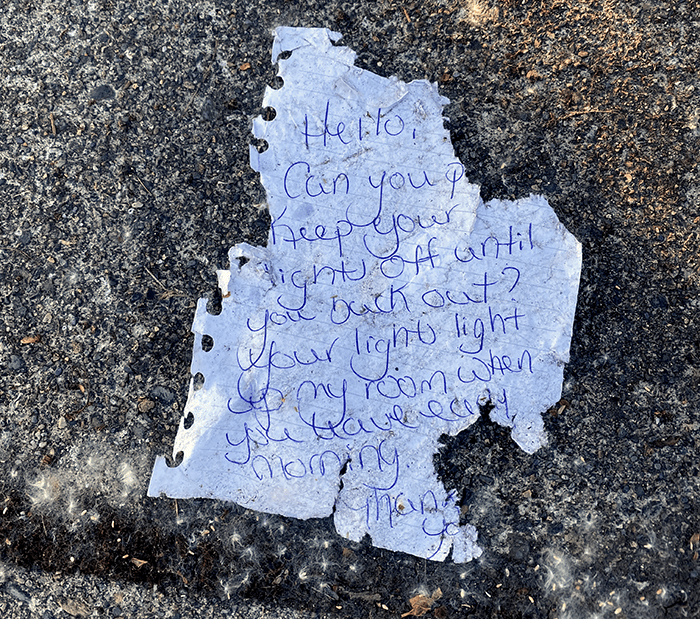 Hello,
Can you p
keep your
lights off until
you back out?
Your lights light
up my room when
you leave early
morning.
Than
yo